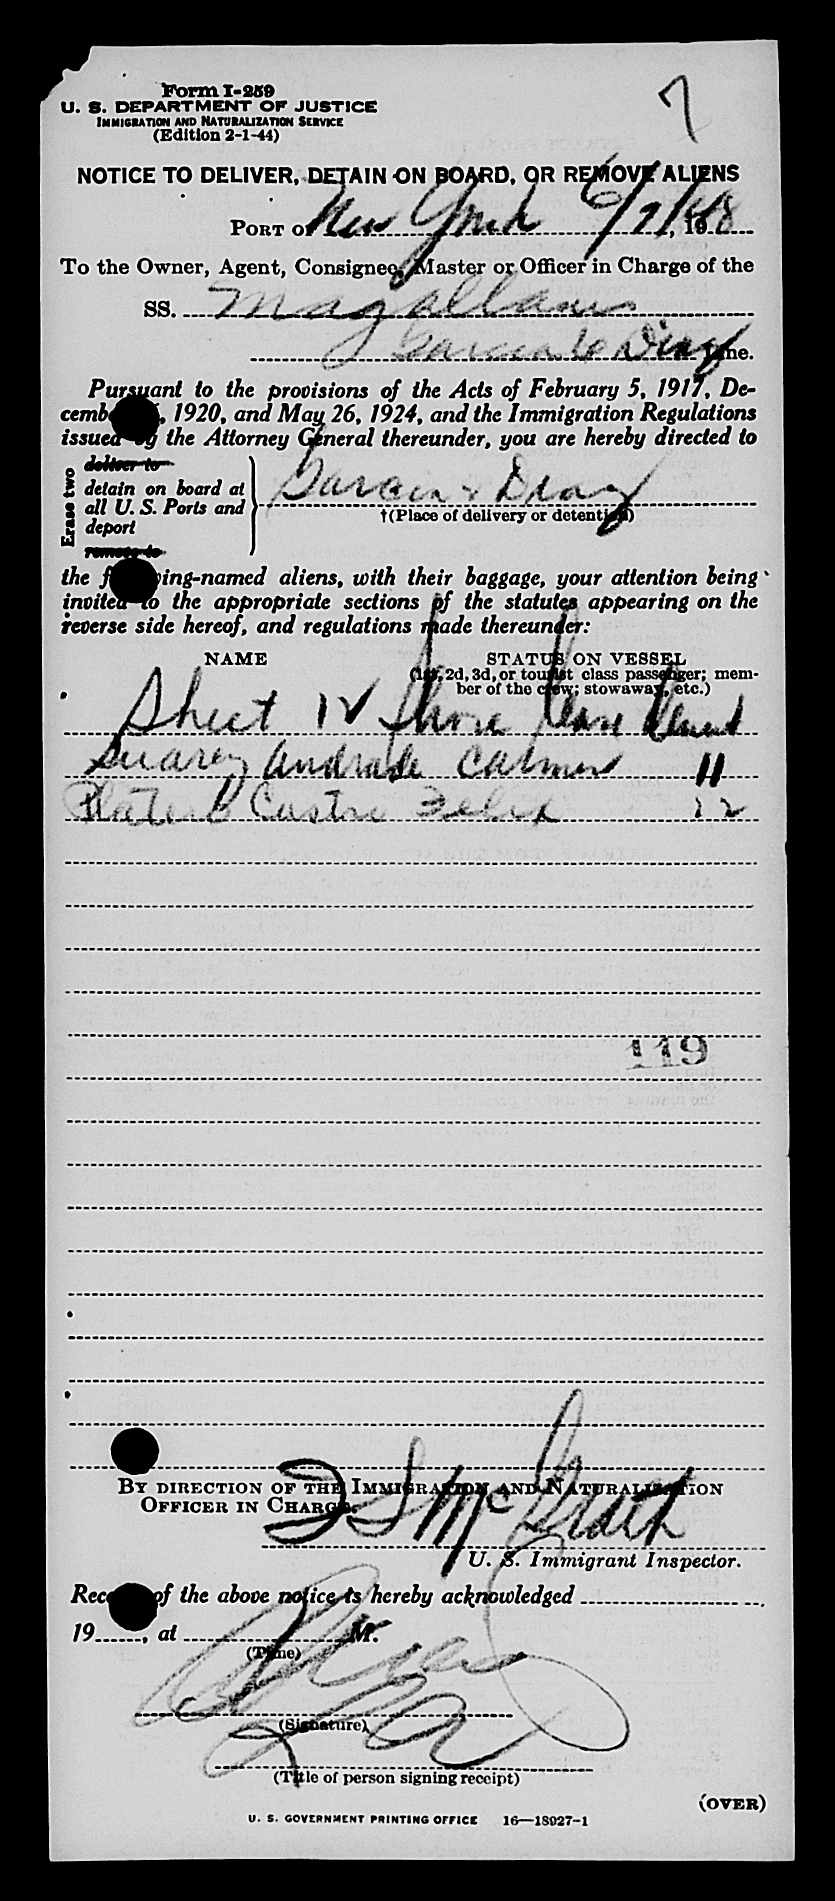 Form I-259
7
U. S. DEPARTMENT OF JUSTICE
IMMIGRATION AND NATURALIZATION SERVICE
(Edition 2-1-44)
NOTICE TO DELIVER, DETAIN ON BOARD, OR REMOVE ALIENS
PORT OF New York 6/7/, 1948
To the Owner, Agent, Consignee, Master or Officer in Charge of the
SS. Magallanes
Garcia & Diaz Line.
Pursuant to the provisions of the Acts of February 5, 1917, De-
cemb , 1920, and May 26, 1924, and the Immigration Regulations
issued by the Attorney General thereunder, you are hereby directed to
Erase two
deliver to
detain on board at
all U. S. Ports and
deport
remove to
Garcia & Diaz
†(Place of delivery or detention)
the f ing-named aliens, with their baggage, your attention being
invited to the appropriate sections of the statutes appearing on the
reverse side hereof, and regulations made thereunder:
NAME STATUS ON VESSEL
(1st, 2d, 3d, or tourist class passenger; mem-
ber of the crew; stowaway, etc.)
Sheet 12 Shore Leave
Suarez Andrade Carmen 11
Castro Felix 22
119
BY DIRECTION OF THE IMMIGRATION AND NATURALIZATION
OFFICER IN CHARGE.
McGrath
U. S. Immigrant Inspector.
Rec of the above notice is hereby acknowledged
19 , at M.
(Time)
(Signature)
(Title of person signing receipt)
(OVER)
U. S. GOVERNMENT PRINTING OFFICE 16—18027-1